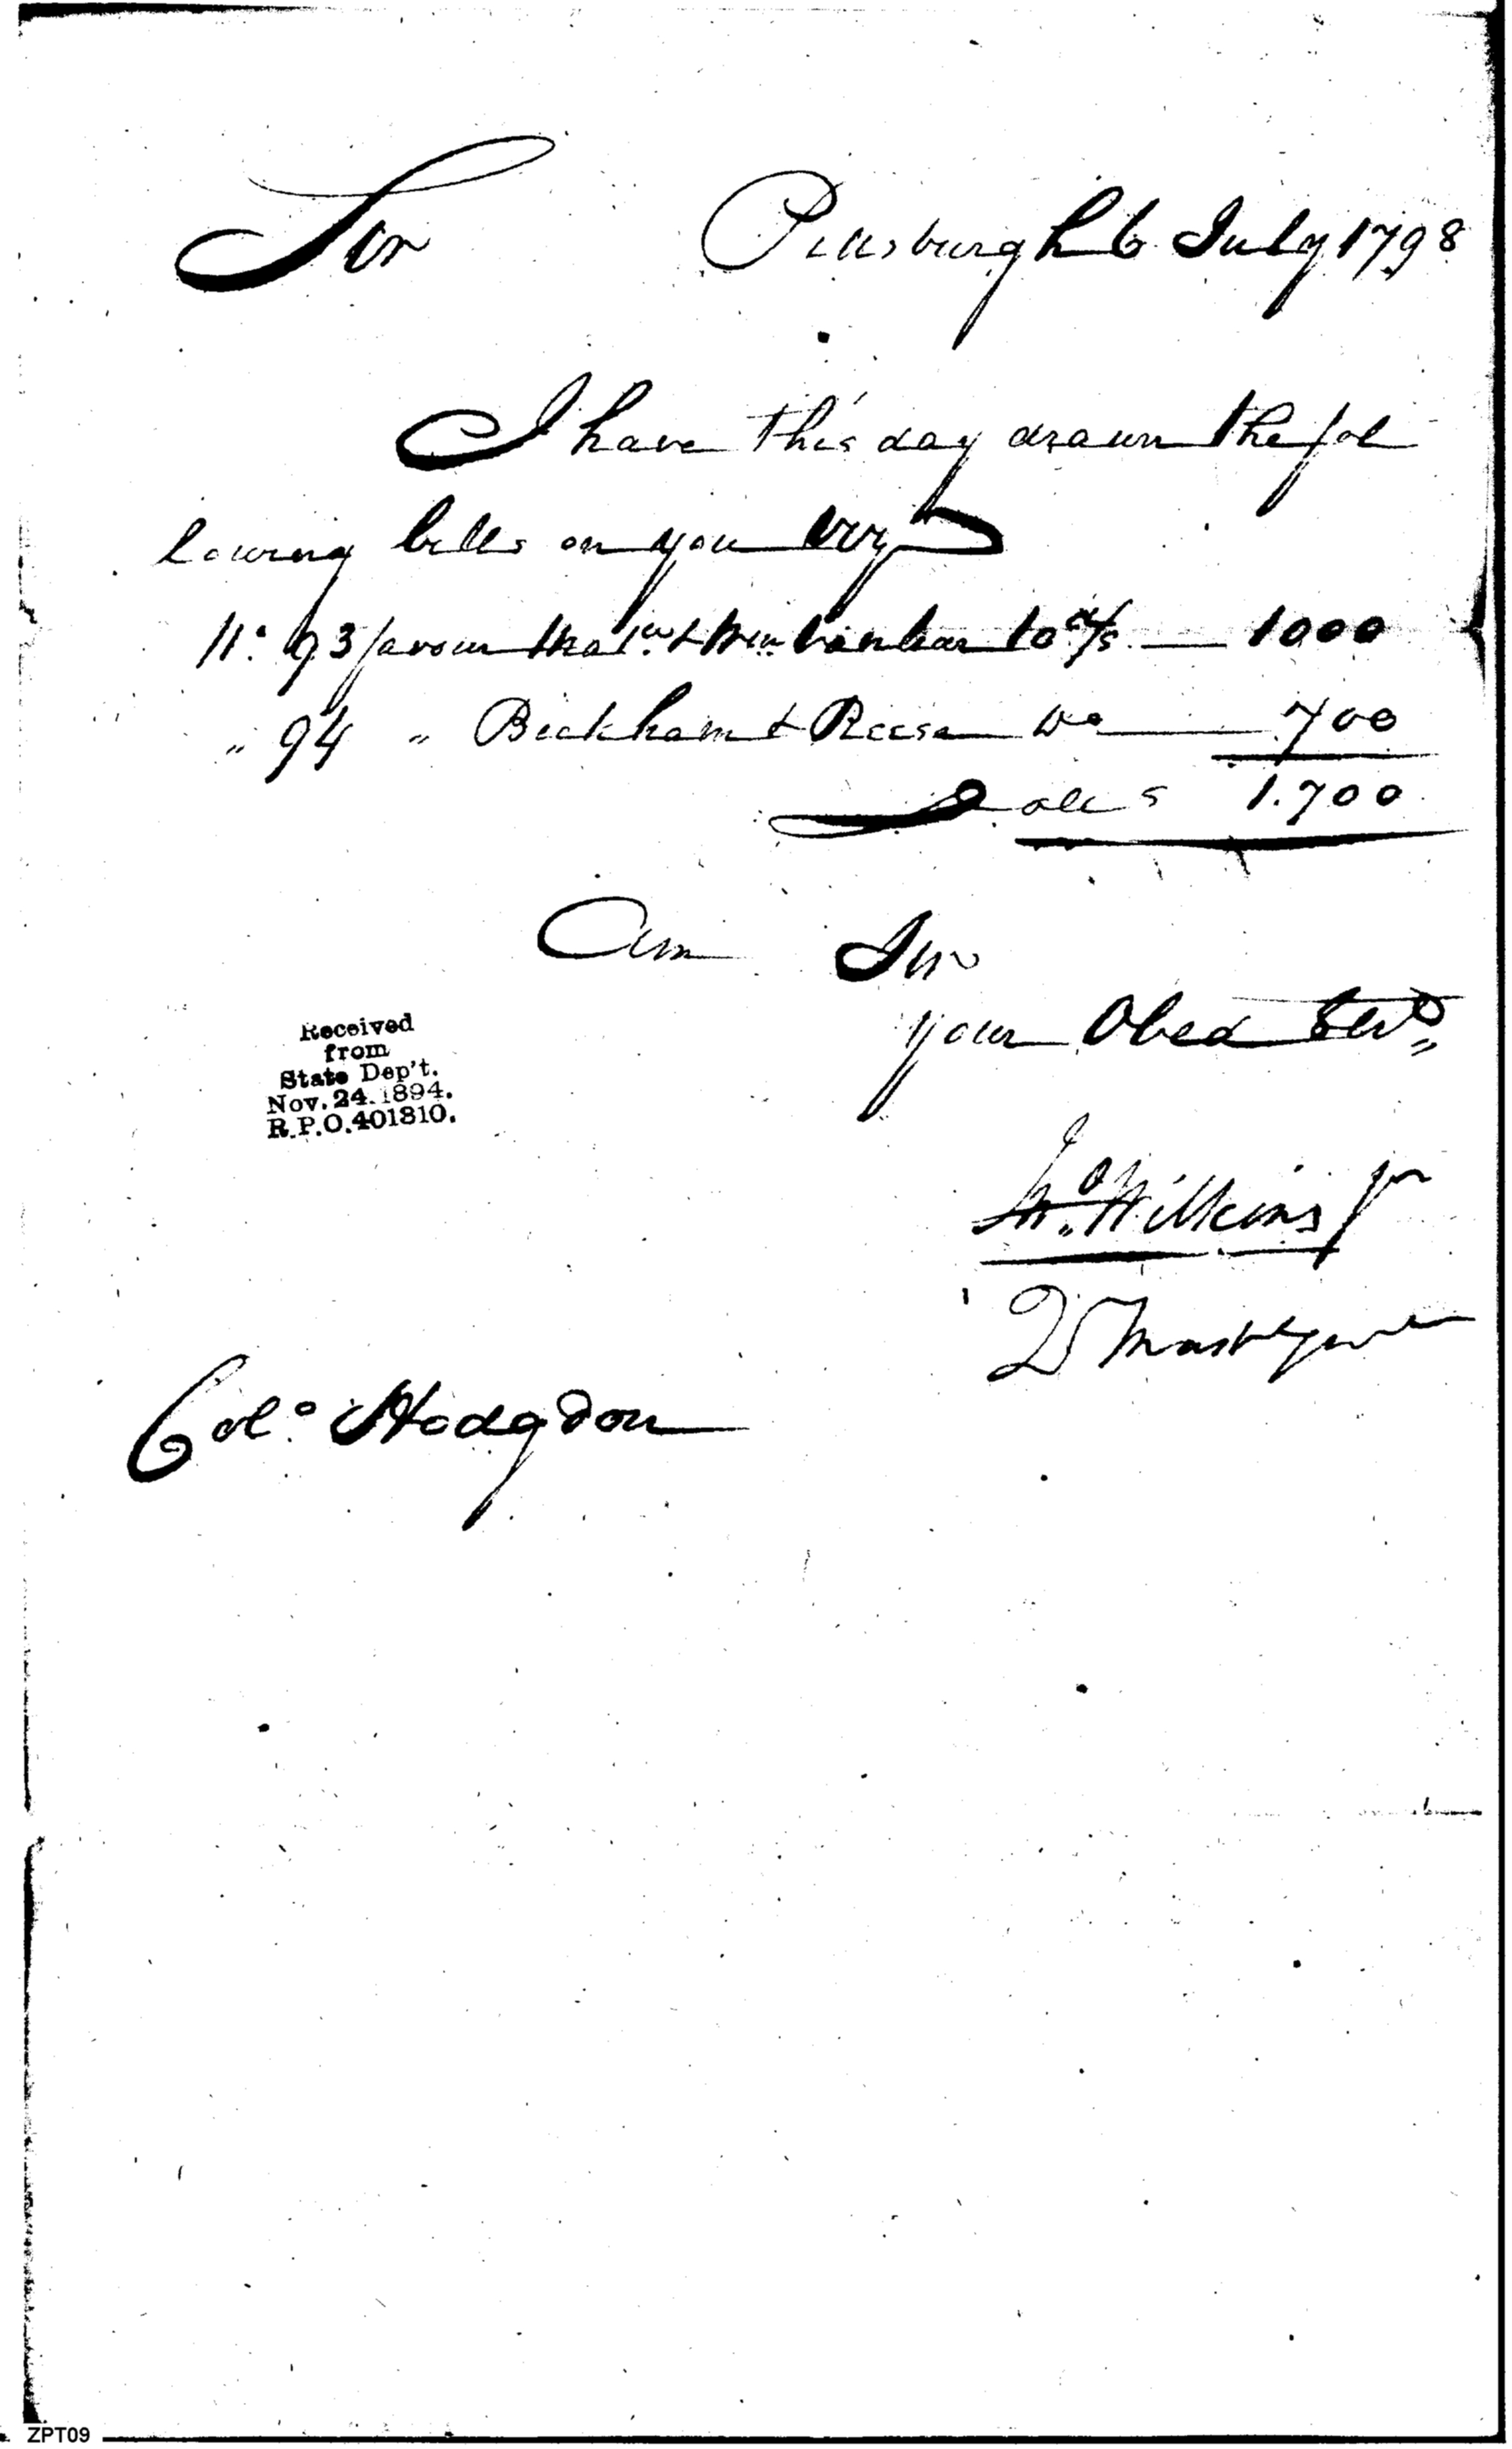 Sir Pittsburgh 6 July 1798
I have this day drawn the fol
lowing bills on you Vizt
No. 93 favour & Wm 10 d/s 1000
" 94 " Beckham & Reese Do 700
Dolls 1.700
Am Sir
your Obed Servt
Jno. Wilkins Jr
Qr Mastr General
Received
from
State Dep't.
Nov. 24. 1894.
R.P.O. 401810.
Colo. Hodgdon
ZPT09